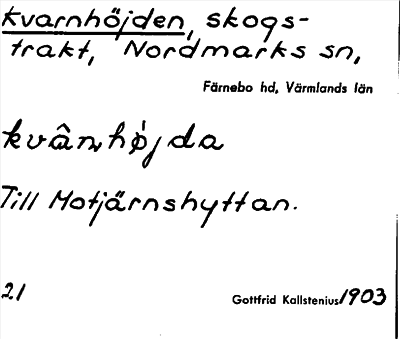 Kvarnhöjden, skogs-
trakt, Nordmarks sn,
Färnebo hd, Värmlands län
kvânhǿjda
Till Motjärnshyttan.
21
Gottfrid Kallstenius 1903